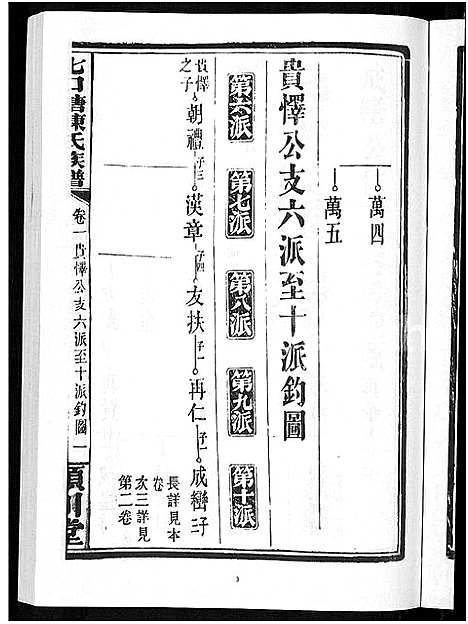 萬四
萬五
貴懌公支六派至十派鈞圖
第六派 第七派 第八派 第九派 第十派
貴懌之子 朝禮 子三 漢章 子四 友扶 子一 再仁 子一 成巒 子
長詳見本卷
次三詳見第二卷
七口塘陳氏族譜 卷一 貴懌公支六派至十派鈞圖 一 堂